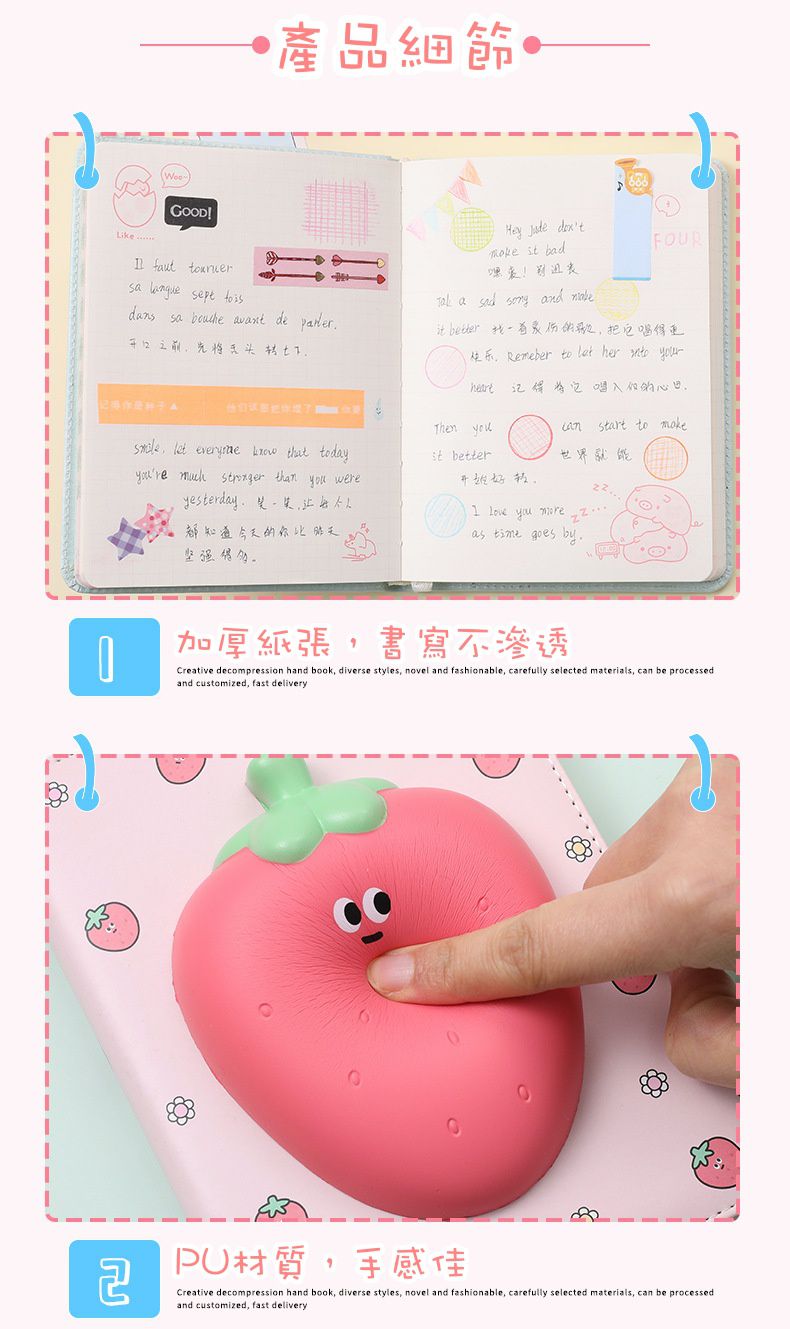 產品細節
Woo~
GOOD!
Like ......
Il faut tourner
sa langue sept fois
dans sa bouche avant de parler.
开口之前，先将舌头转七下.
记得你是种子▲
他们该
smile, let everyone know that today
you're much stronger than you were
yesterday. 笑一笑,让每个人
都知道今天的你比昨天
坚强得多。
666
FOUR
Hey Jude don't
make it bad
嘿 裘! 别沮丧
Take a sad song and make
it better 找一首哀伤的歌, 把它唱得更
快乐. Remeber to let her into your
heart 记得将它唱入你的心田.
Then you can start to make
it better 世界就能
开始好转.
zz...
zz...
I love you more
as time goes by.
1
加厚紙張，書寫不滲透
Creative decompression hand book, diverse styles, novel and fashionable, carefully selected materials, can be processed
and customized, fast delivery
2
PU材質，手感佳
Creative decompression hand book, diverse styles, novel and fashionable, carefully selected materials, can be processed
and customized, fast delivery